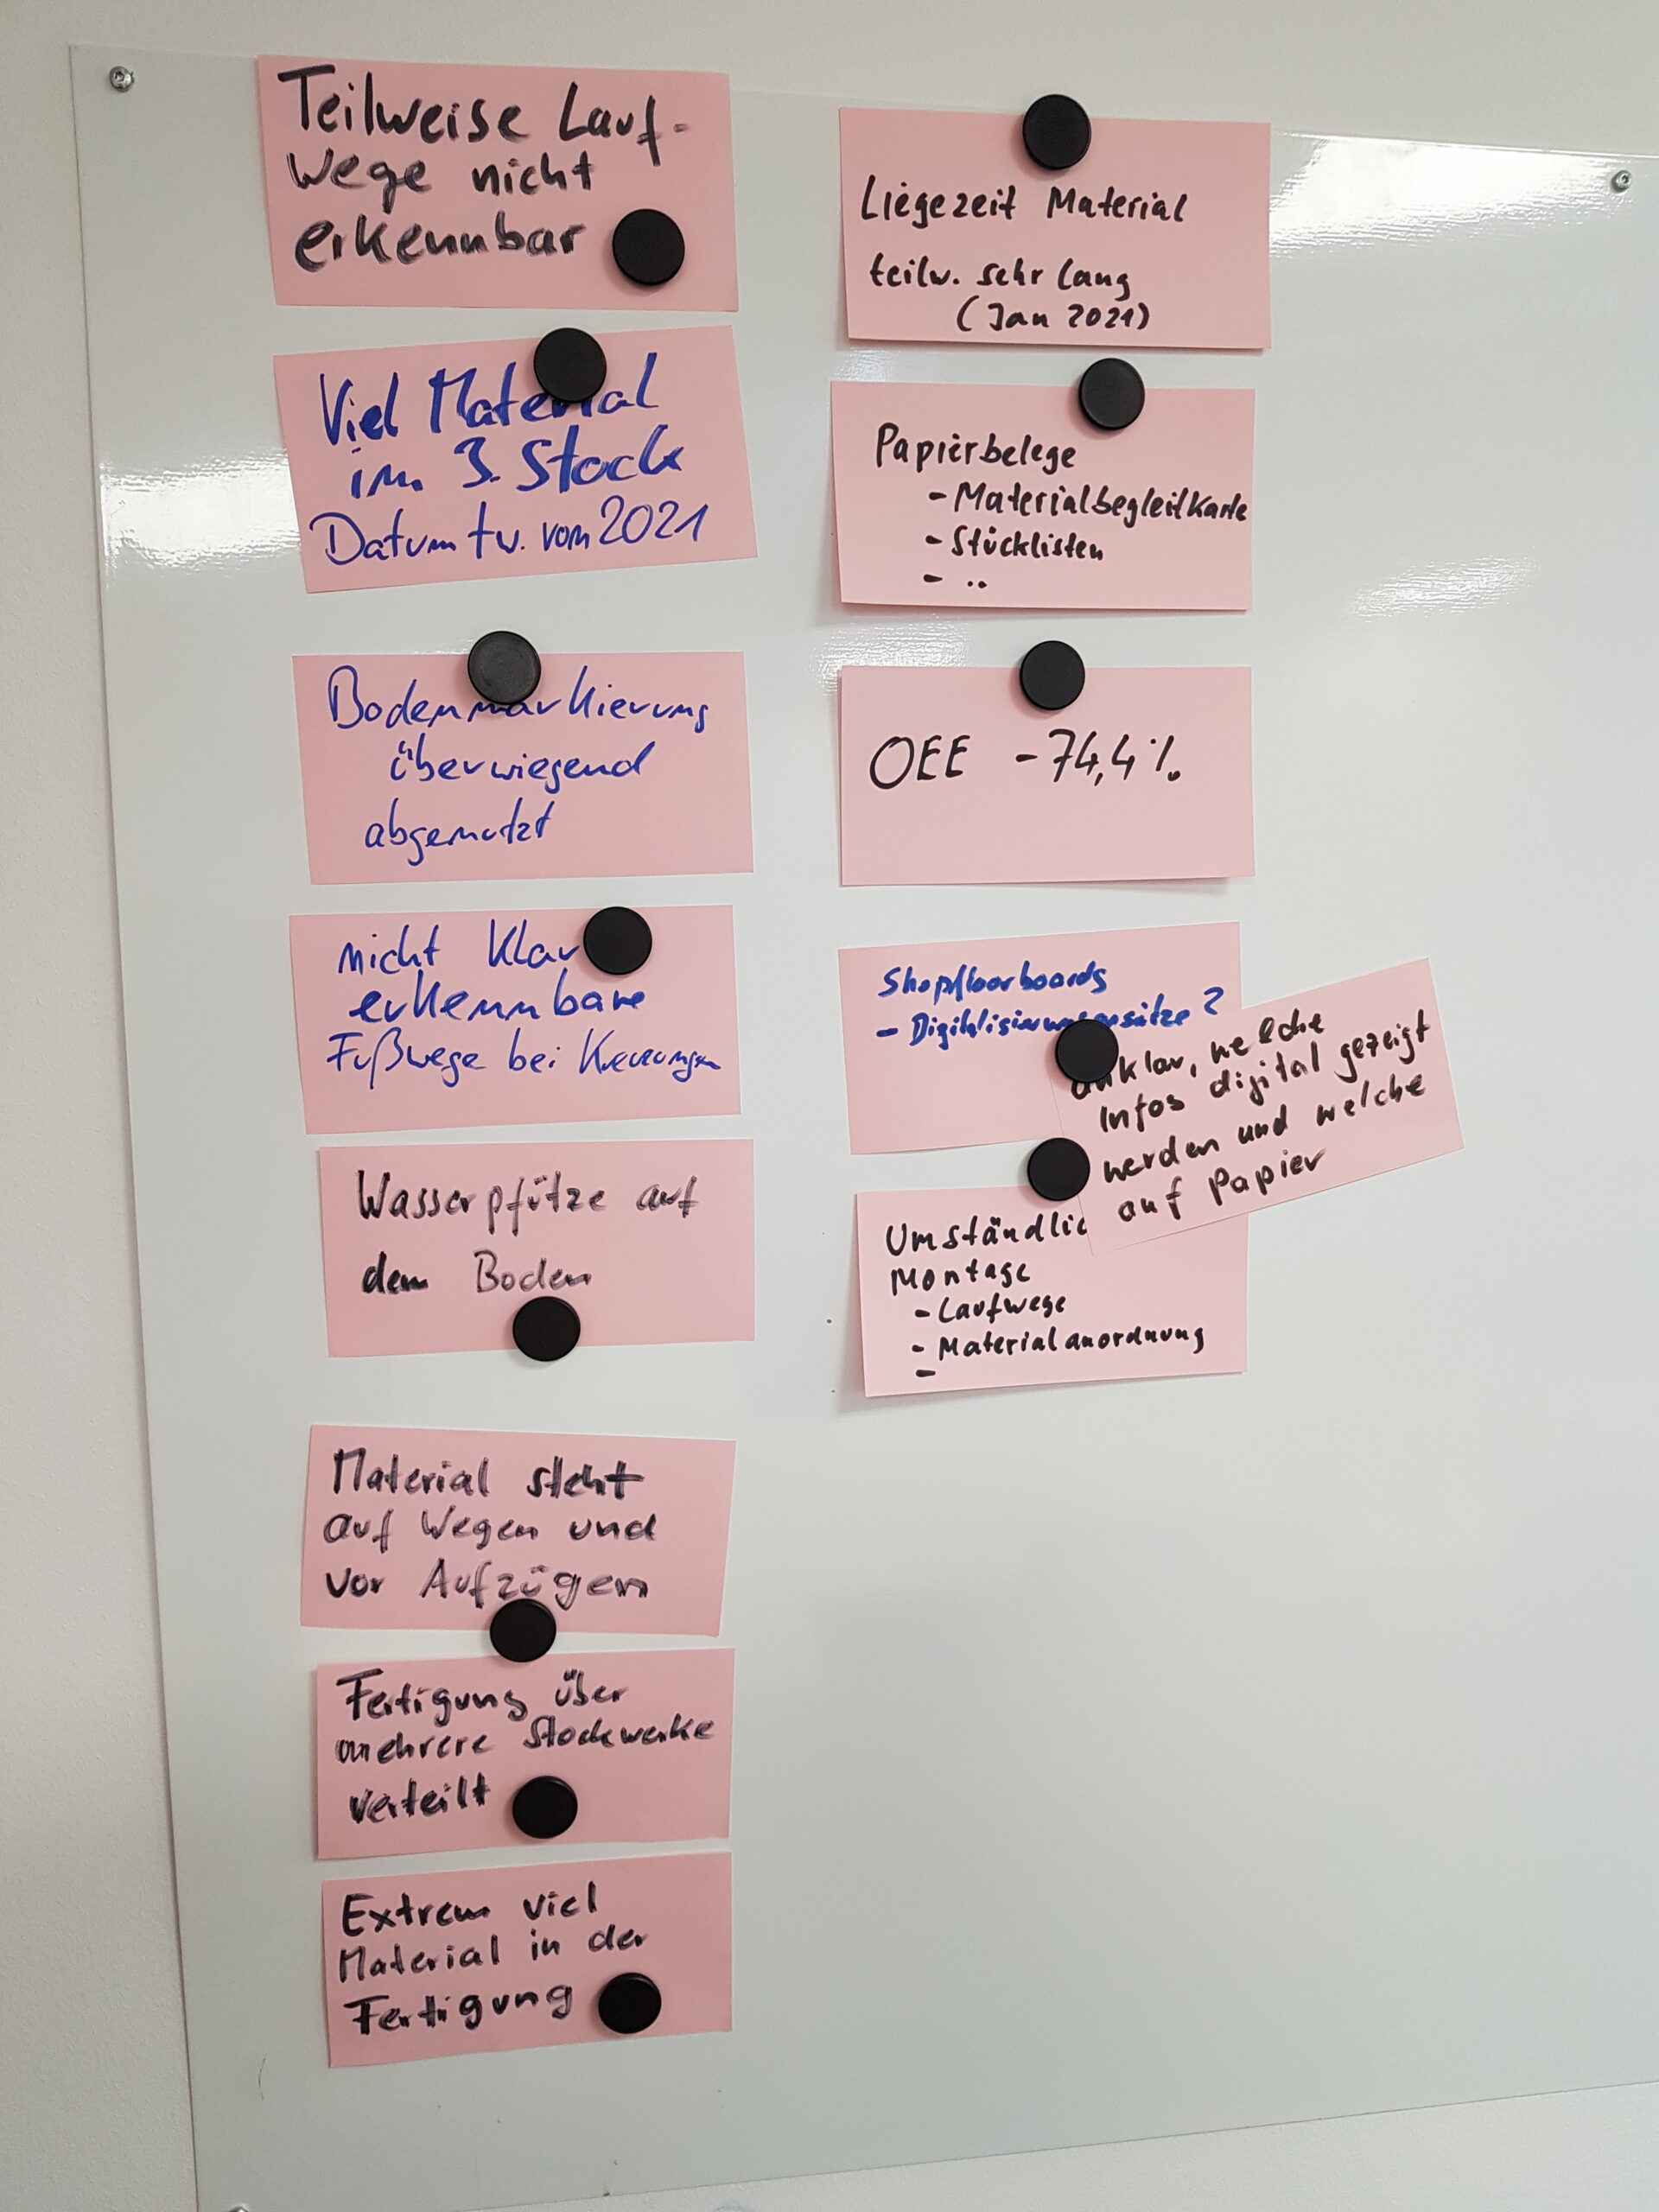 Teilweise Lauf-
wege nicht
erkennbar
Viel Material
im 3. Stock
Datum tw. vom 2021
Bodenmarkierung
überwiegend
abgenutzt
nicht klar
erkennbare
Fußwege bei
Wasserpfütze auf
dem Boden
Material steht
auf Wegen und
vor Aufzügen
Fertigung über
mehrere Stockwerke
verteilt
Extrem viel
Material in der
Fertigung
Liegezeit Material
teilw. sehr lang
(Jan 2021)
Papierbelege
- Materialbegleitkarte
- Stücklisten
- ..
OEE - 74,4 %
Shopfloorboards
- Digitalisierungsansätze?
unklar, welche
Infos digital gezeigt
werden und welche
auf Papier
Umständlic
Montage
- Laufwege
- Materialanordnung
-